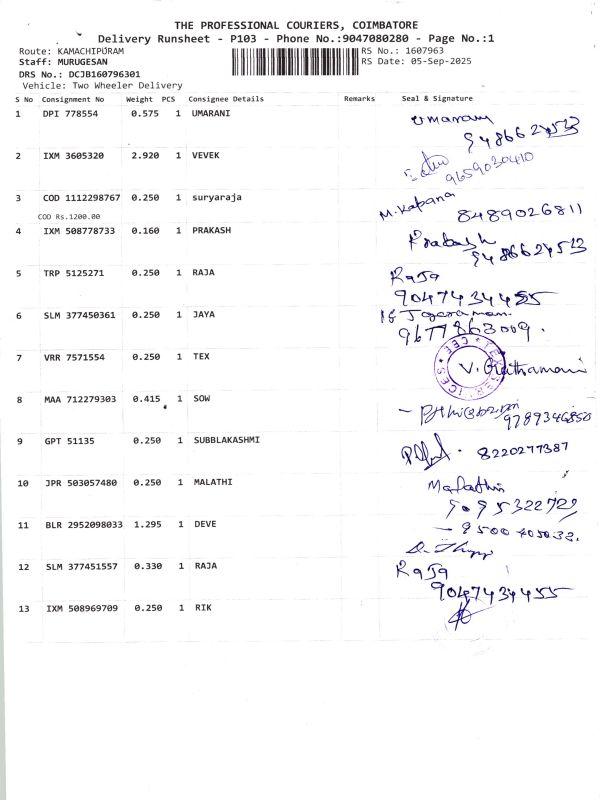 THE PROFESSIONAL COURIERS, COIMBATORE
Delivery Runsheet - P103 - Phone No.:9047080280 - Page No.:1
Route: KAMACHIPURAM RS No.: 1607963
Staff: MURUGESAN RS Date: 05-Sep-2025
DRS No.: DCJB160796301
Vehicle: Two Wheeler Delivery
S No Consignment No Weight PCS Consignee Details Remarks Seal & Signature
1 DPI 778554 0.575 1 UMARANI Umarani
2 IXM 3605320 2.920 1 VEVEK 9659030410
3 COD 1112298767 0.250 1 suryaraja M. Kalpana 8489026811
COD Rs.1200.00
4 IXM 508778733 0.160 1 PRAKASH Prakash
5 TRP 5125271 0.250 1 RAJA Raja
9047434455
6 SLM 377450361 0.250 1 JAYA
9677863009.
7 VRR 7571554 0.250 1 TEX V.
8 MAA 712279303 0.415 1 SOW 9789346850
9 GPT 51135 0.250 1 SUBBLAKASHMI 8220277387
10 JPR 503057480 0.250 1 MALATHI Malathi
9095322722
11 BLR 2952098033 1.295 1 DEVE - 9500405032.
12 SLM 377451557 0.330 1 RAJA Raja
9047434455
13 IXM 508969709 0.250 1 RIK